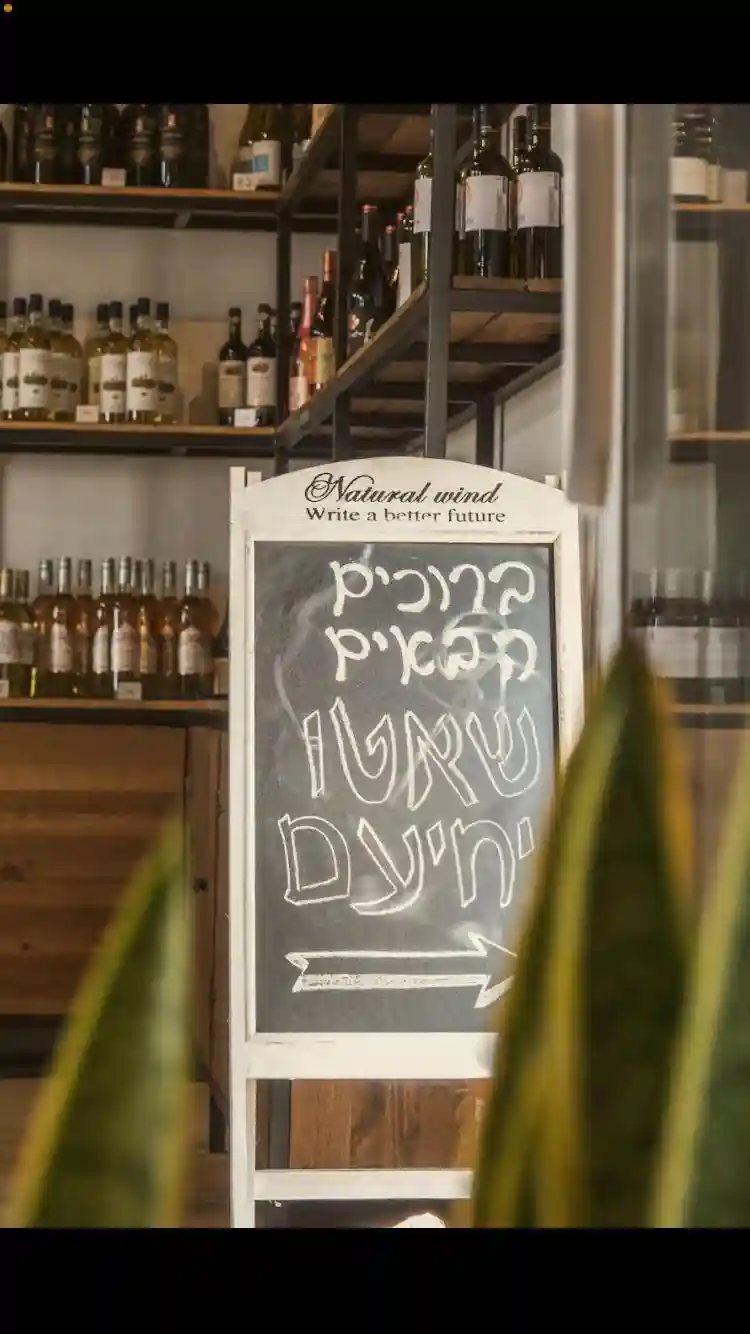 Natural wind
Write a better future
ברוכים
הבאים
שאטו
יחיעם